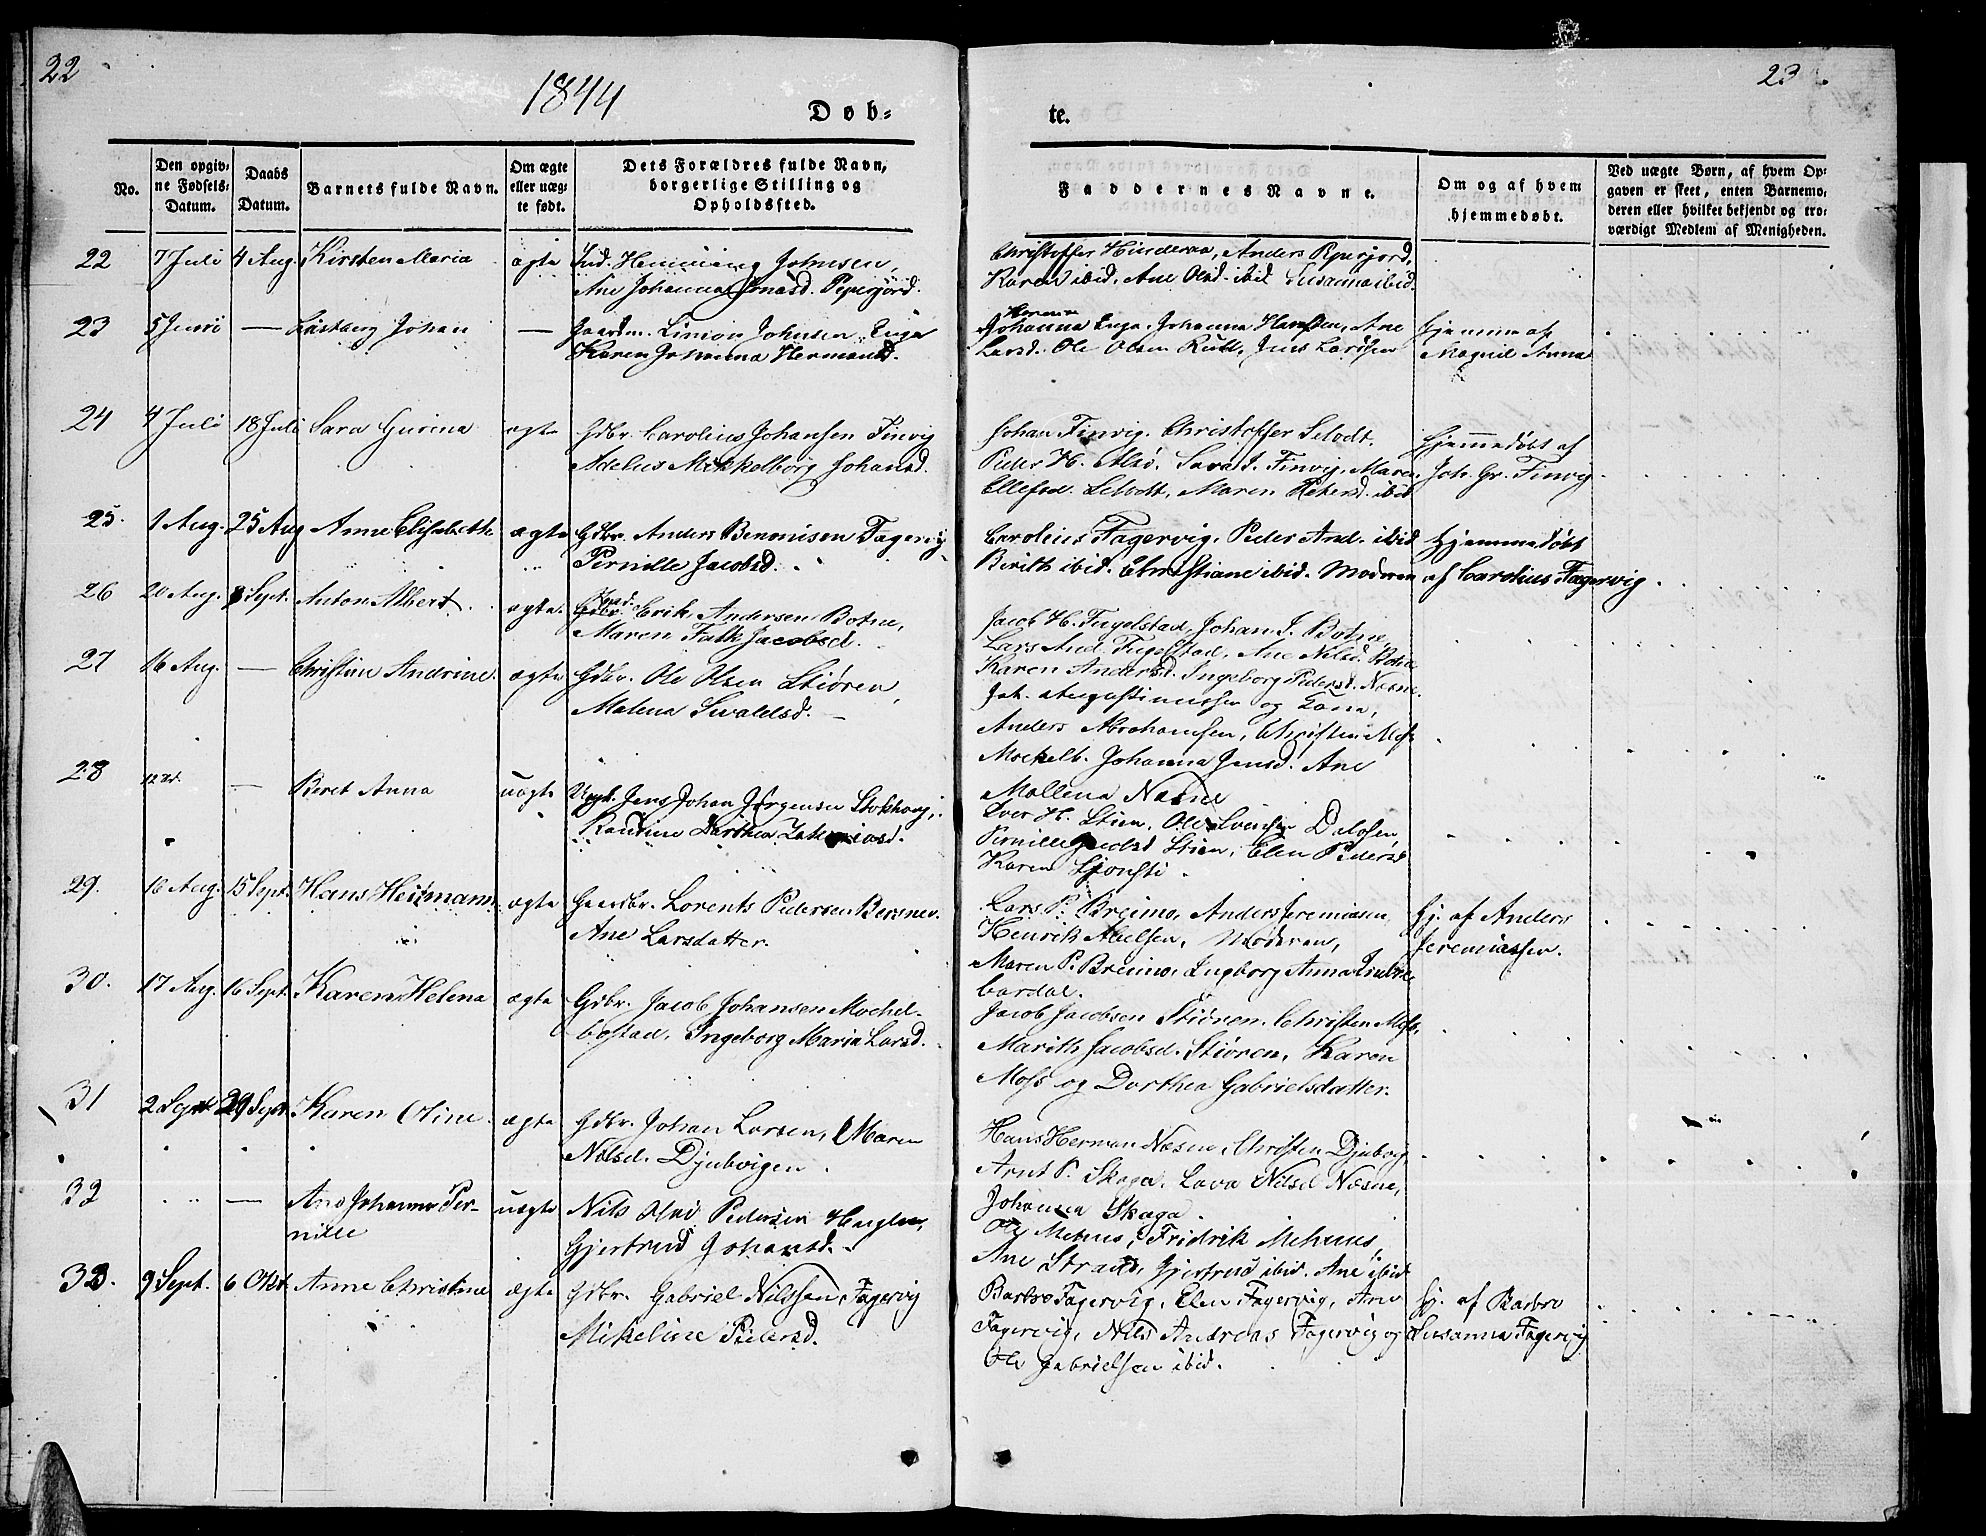 22
1844
Døb-
No.
Den opgiv-
ne Fødsels-
Datum.
Daabs
Datum.
Barnets fulde Navn.
Om ægte
eller uæg-
te født.
Dets Forældres fulde Navn,
borgerlige Stilling og
Opholdssted.
22 7 Juli 4 Aug. Kirsten Maria ægte Ind. Henning Johnsen,
Ane Johanna Jonasd.
23 5 Juni — Johan — Gaardm. Simon Johnsen Enge
Karen Johanna Hermansd.
24 4 Juli 18 Juli Sara Gurina ægte Gdbr. Carolius Johansen Finvig
Adelus Mikkelborg Johansd.
25. 1 Aug. 25 Aug Anne Elisabeth ægte Gdbr. Anders Bennisen Fagervig
Pernille Jacobsd.
26 20 Aug. 8 Sept. Anton Albert ægte. Erik Andersen Botne,
Maren Falk Jacobsd.
27 16 Aug. — Christine Andrine. ægte Gdbr. Ole Olsen Stiøren,
Malena Sivaldsd. —
28 — Beret Anna uægte Ungk. Jens Johan Jørgensen
Dorthea
29. 16 Aug. 15 Sept. Hans Heitmann ægte Gaardbr. Lorents Pedersen
Ane Larsdatter.
30. 17 Aug. 16 Sept. Karen Helena ægte Gdbr. Jacob Johansen Mochel-
bostad, Ingeborg Maria Larsd.
31 2 Sept 29 Sept. Karen Oline ægte Gdbr. Johan Larsen, Maren
Nilsd. Djubvigen.
32 — Ane Johanna Per-
nille uægte Nils Olai Pedersen
Gjertrud Johansd.
33. 9 Sept. 6 Okt. Anne Christine ægte Gdbr. Gabriel Nilssen, Fagervig
Mikeline Pedersd.
23
te.
Faddernes Navne.
Om og af hvem
hjemmedøbt.
Ved uægte Børn, af hvem Op-
gaven er skeet, enten Barnemo-
deren eller hvilket bekjendt og tro-
værdigt Medlem af Menigheden.
Christoffer Hinderaa, Anders
Karen ibid, Ane Olsd. ibid Susanna ibid.
Johanna Enge, Johanna Hansen, Ane Hjemme af
Larsd. Ole Olsen Jens Larssen Anna
Johan Finvig. Christoffer Selodt. Hjemmedøbt af
Peder H. Alsø. Sara J. Finvig, Maren Joh. Gr. Finvig
Ellefsd. Selodt, Maren Petersd. ibid
Carolius Fagervig. Peder And. ibid Hjemmedøbt
Berith ibid. Christiane ibid. Moderen af Carolius Fagervig.
Jacob H. Johan J. Botne
Lars And. Ane Nilsd. Botne
Karen Andersd. Ingeborg Pedersd. Næsne.
Joh. Augustinussen og
Anders Abrahamsen, Christen
Mockelb. Johanna Jensd. Ane
Mallena Næsne
Iver H. Stien, Ole Dalosen
Pernille Stien, Elen Pedersd
Karen
Lars P. Breimo, Anders Jeremiasen Hj. af Anders
Henrik Moderen, Jeremiassen.
Maren P. Breimo, Ingborg Anna
bardal.
Jacob Jacobsen Stiøren. Christen
Marith Jacobsd. Stiøren, Karen
Moss og Dorthea Gabrielsdatter.
Hans Herman Næsne, Christen
Arnt P. Skaga, Lava Nilsd Næsne,
Johanna Skaga.
Ole Fridrik
Ane Strand, Gjertrud ibid. Ane ibid
Barbro Fagervig, Elen Fagervig, Ane Hj. af Barbro
Fagervig, Nils Andreas Fagervig og Susanna Fagervig
Ole Gabrielsen ibid.